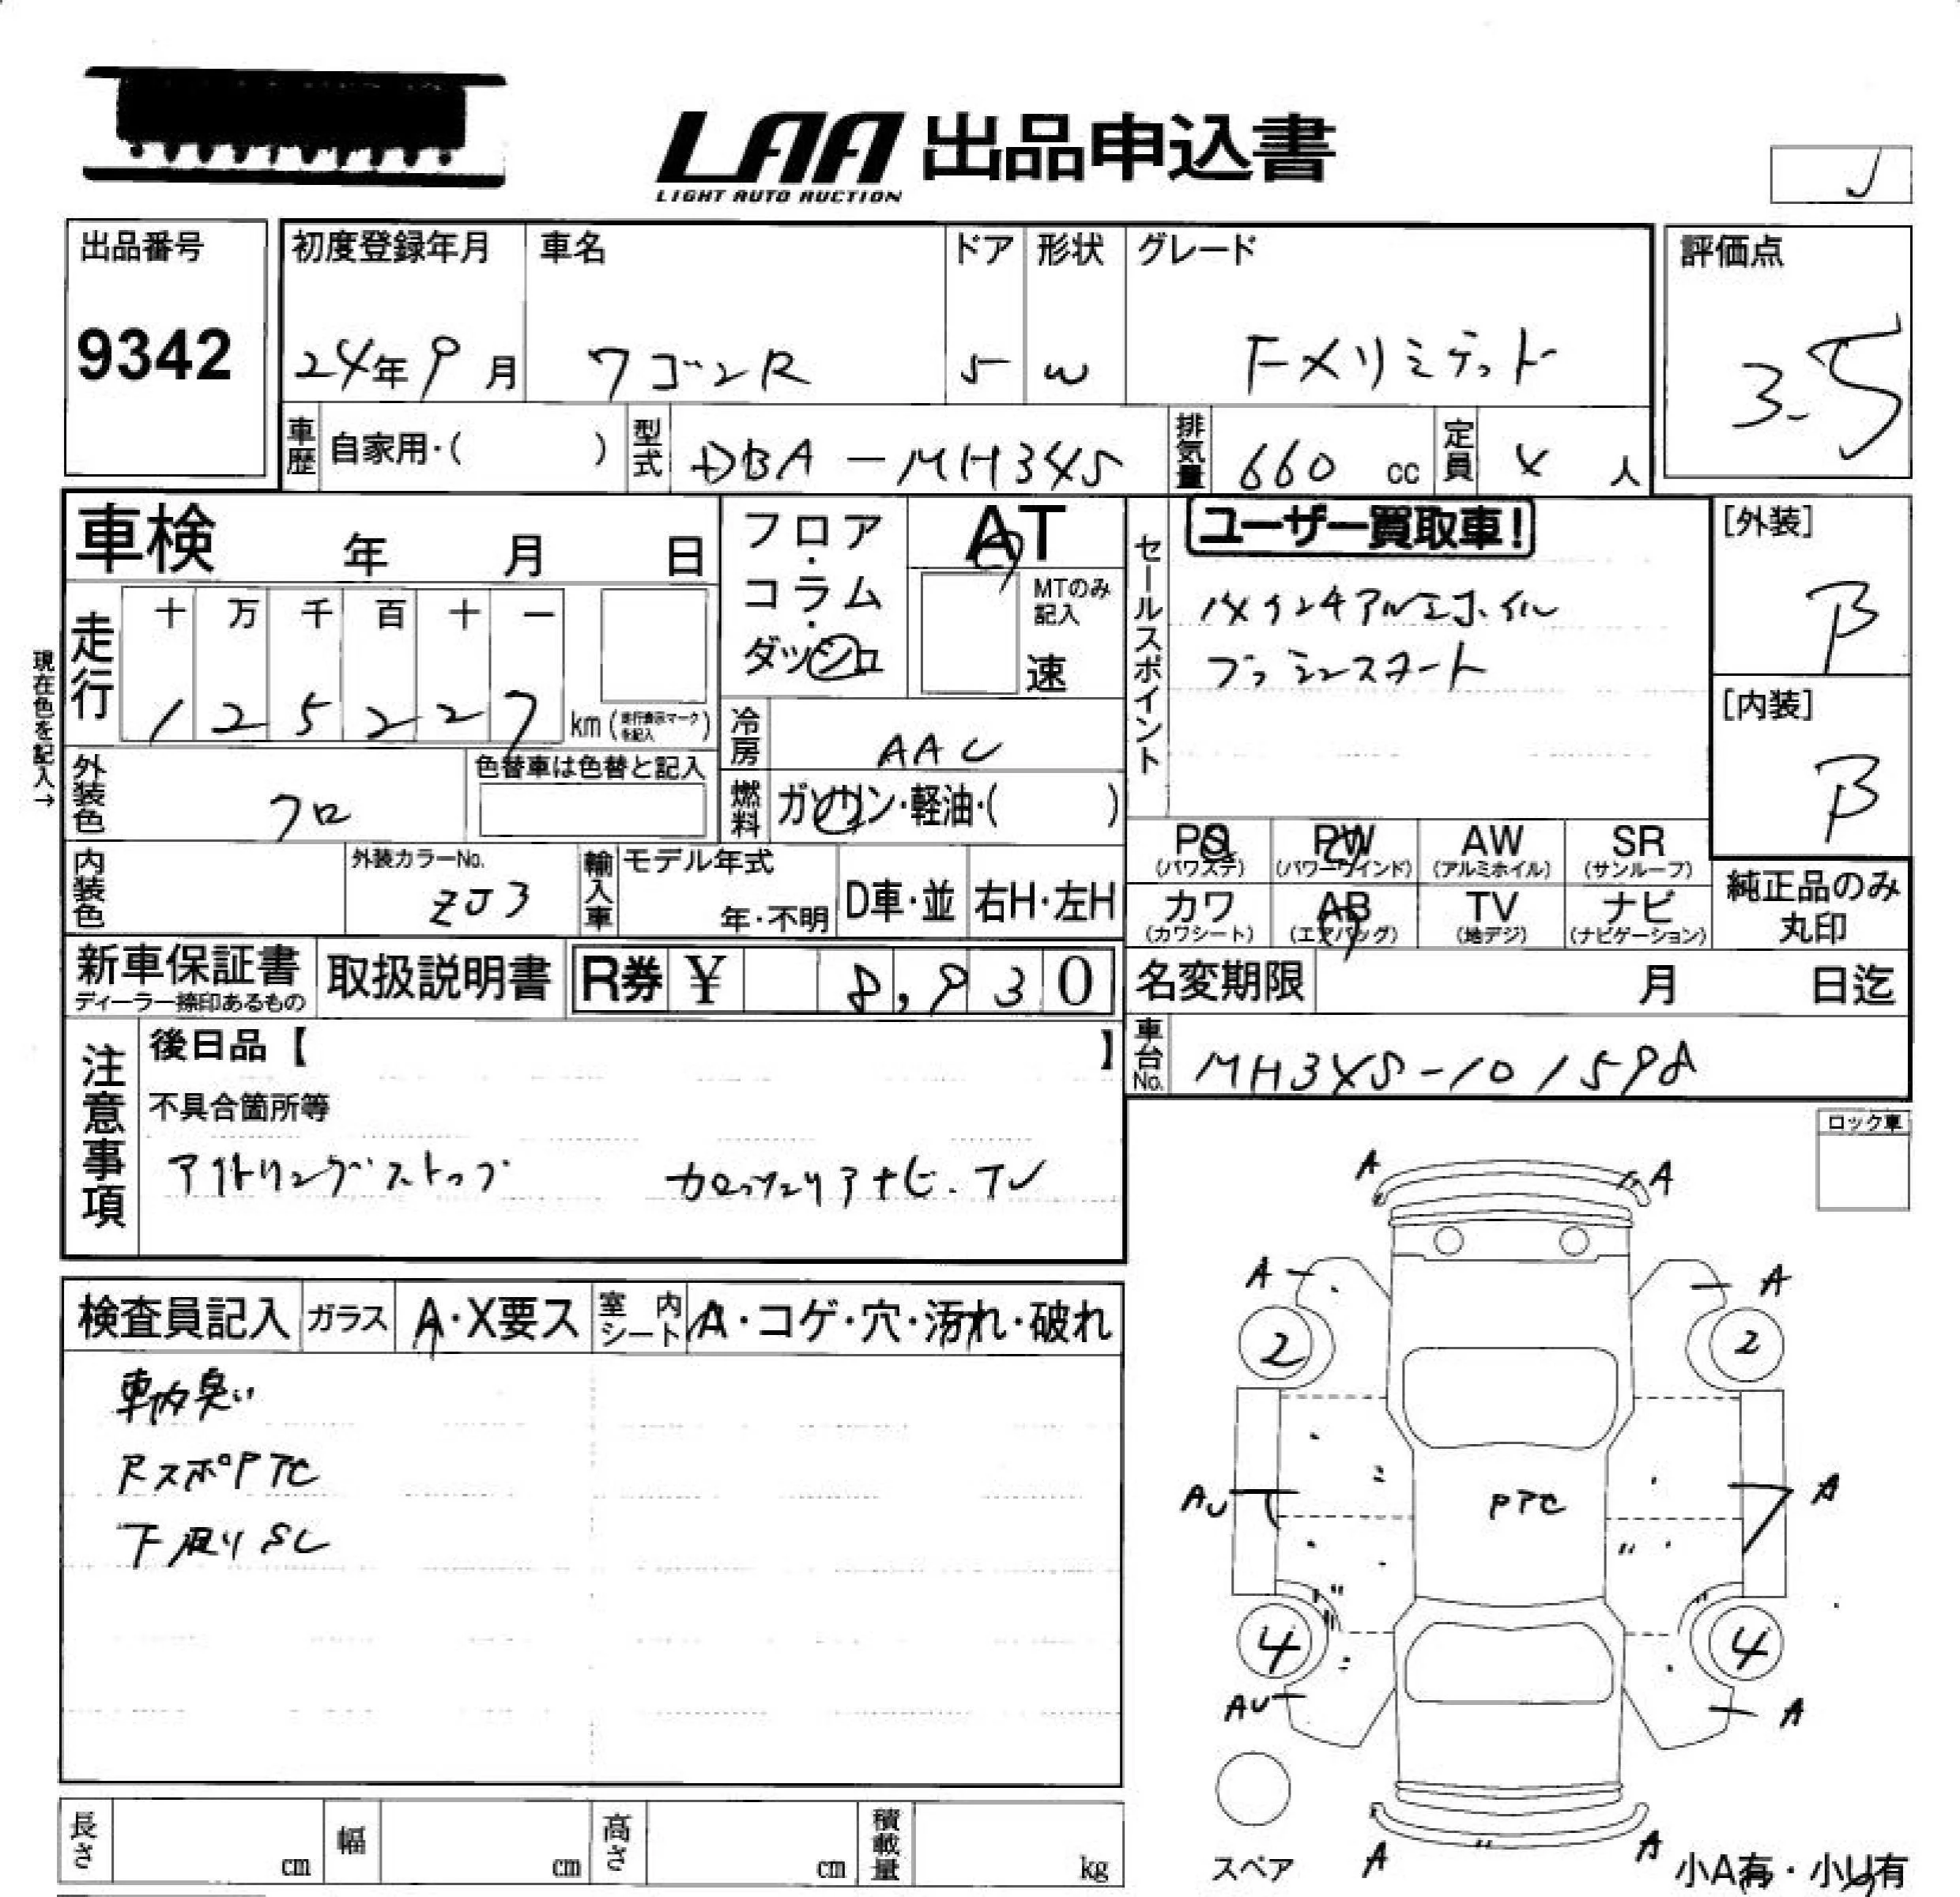 LAA 出品申込書
LIGHT AUTO AUCTION
J
出品番号
9342
初度登録年月
24年9月
車名
ワゴンR
ドア
5
形状
W
グレード
FXリミテット
評価点
3.5
車歴
自家用・( )
型式
DBA-MH34S
排気量
660 cc
定員
4 人
車検 年 月 日
現在色を記入→
走行
十 万 千 百 十 一
1 2 5 2 2 7 km (走行表示マークを記入)
フロア・コラム・ダッシュ
AT
MTのみ記入
速
セールスポイント
ユーザー買取車!
14インチアルミホイル
プッシュスタート
[外装]
B
[内装]
B
冷房
AAC
燃料
ガソリン・軽油・( )
外装色
クロ
色替車は色替と記入
内装色
外装カラーNo.
ZJ3
輸入車
モデル年式
年・不明
D車・並
右H・左H
PS
(パワステ)
PW
(パワーウインド)
AW
(アルミホイル)
SR
(サンルーフ)
カワ
(カワシート)
AB
(エアバッグ)
TV
(地デジ)
ナビ
(ナビゲーション)
純正品のみ
丸印
新車保証書
ディーラー捺印あるもの
取扱説明書
R券 ¥ 8,930
名変期限 月 日迄
車台No.
MH34S-101598
注意事項
後日品【 】
不具合箇所等
アイドリングストップ カロッツェリアナビ.TV
ロック車
検査員記入
ガラス
A・X要ス
室内シート
A・コゲ・穴・汚れ・破れ
車内臭い
RスポPTC
下廻りSC
A A
A A
2 2
AU PTC A
4 4
AU A
スペア
A A
小A有・小U有
長さ cm
幅 cm
高さ cm
積載量 kg